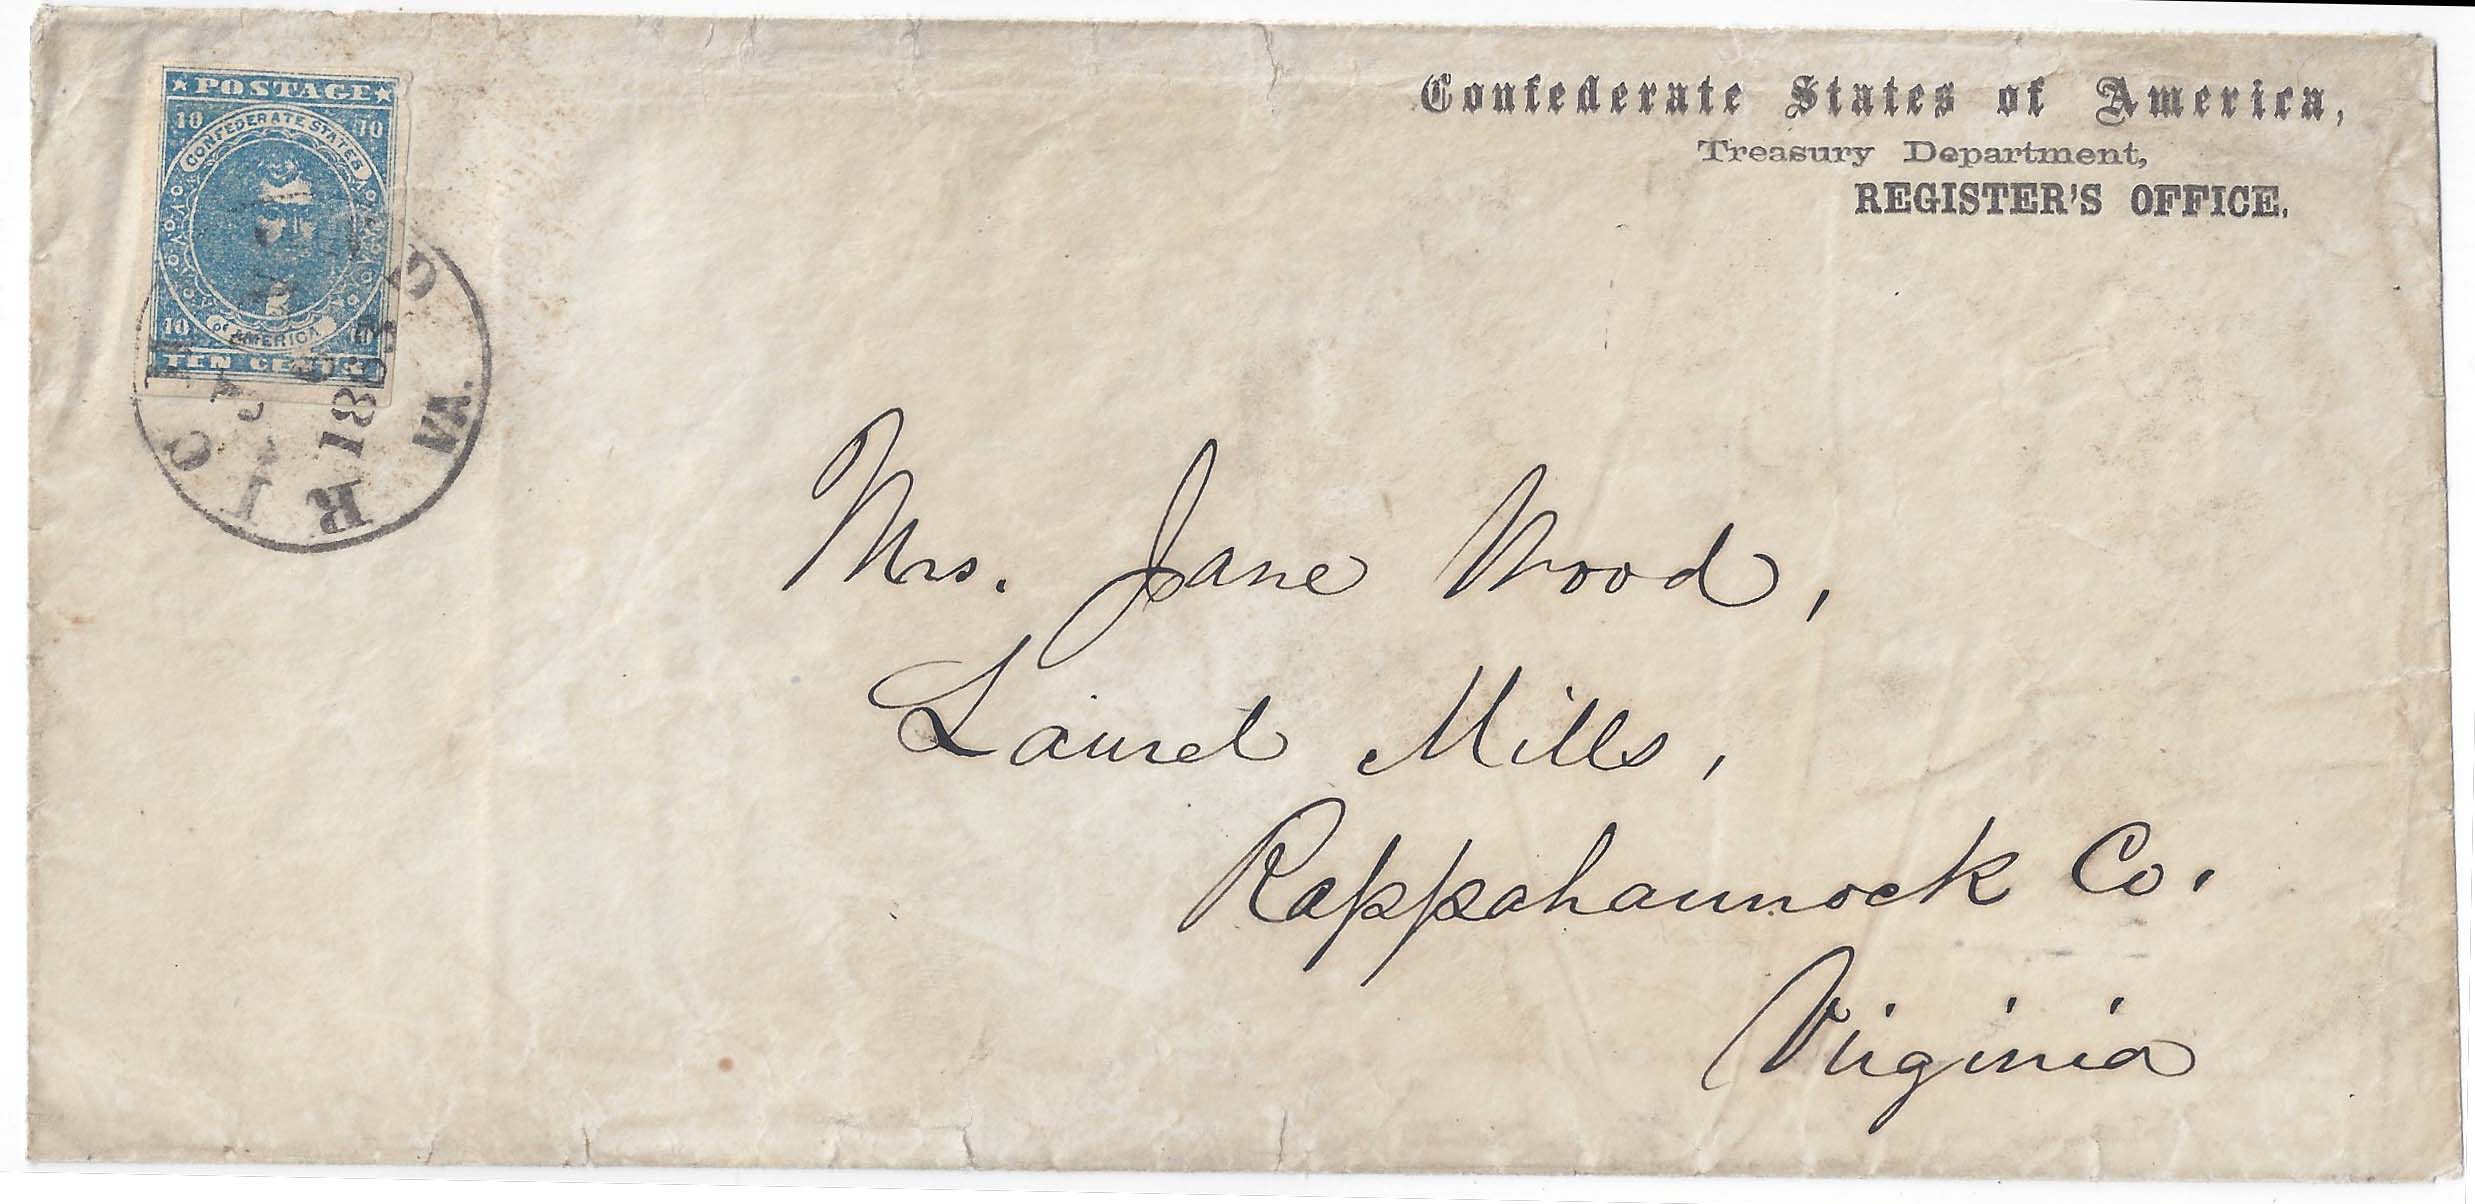 ★ POSTAGE ★
10 10
CONFEDERATE STATES
of AMERICA
10 10
TEN CENTS
RIC
VA.
JAN
1863
Confederate States of America,
Treasury Department,
REGISTER'S OFFICE.
Mrs. Jane Wood,
Laurel Mills,
Rappahannock Co.
Virginia